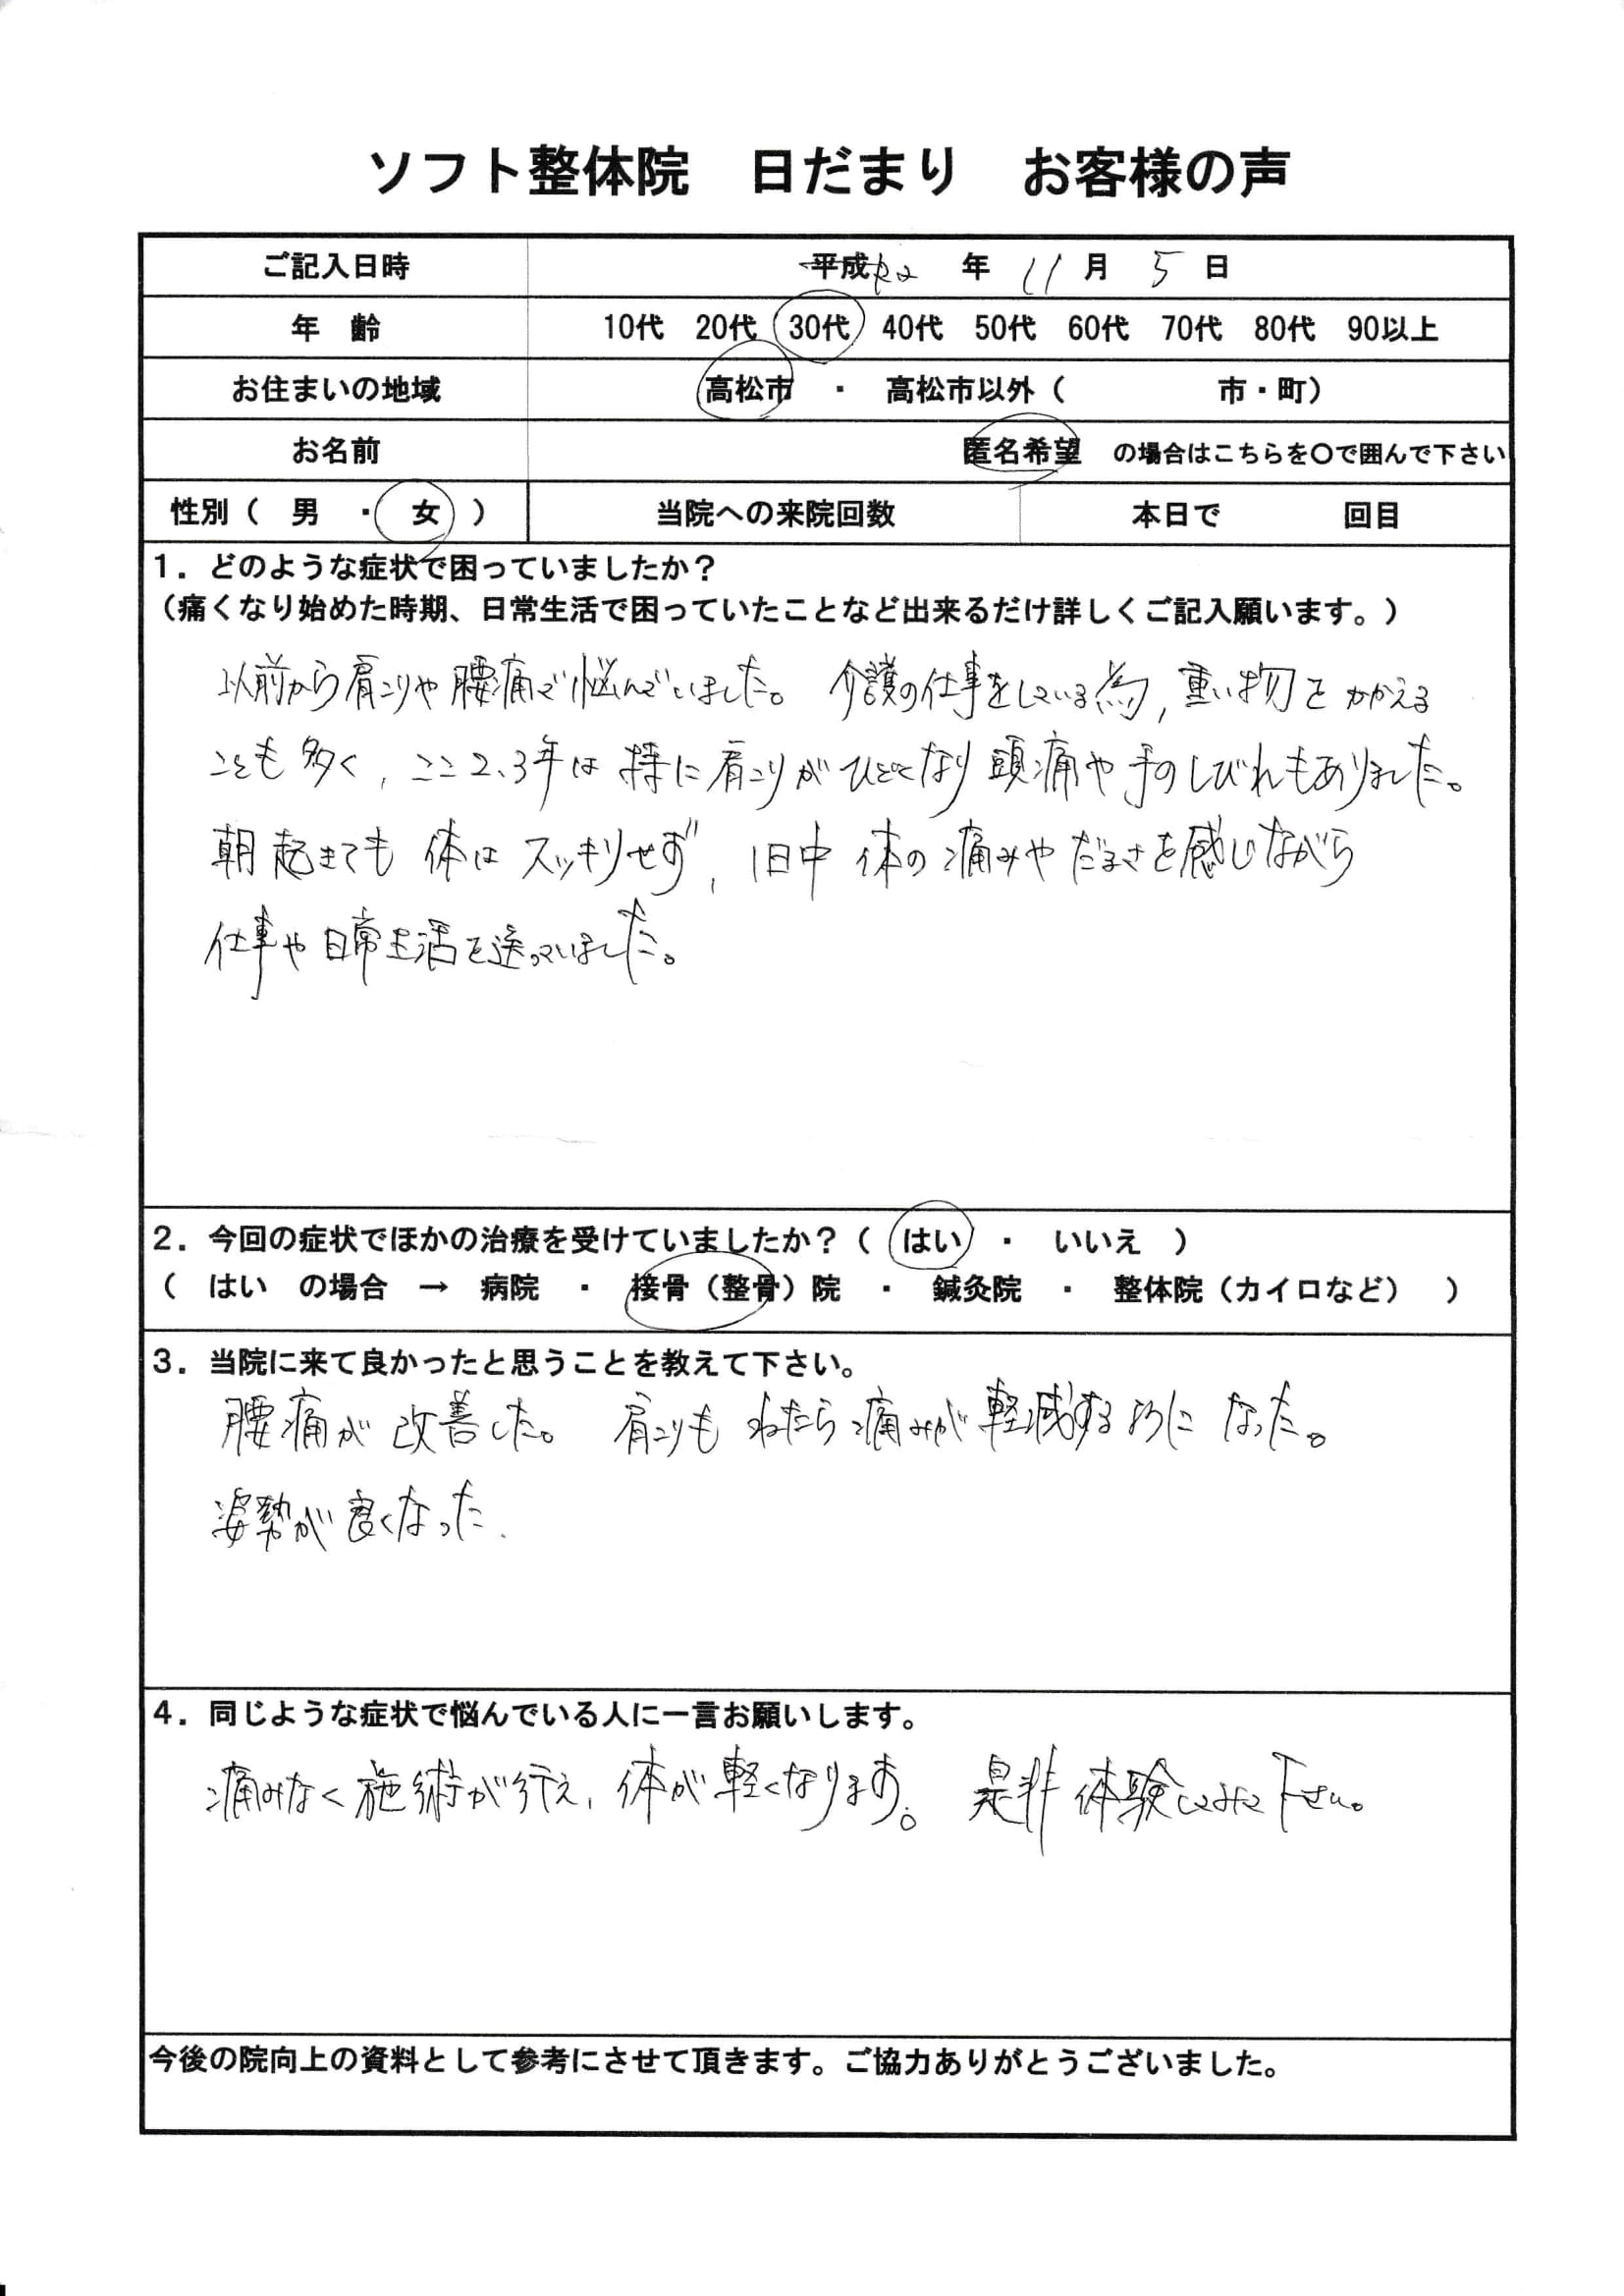 ソフト整体院　日だまり　お客様の声
ご記入日時　平成R2　年　11月　5日
年　齢　10代　20代　30代　40代　50代　60代　70代　80代　90以上
お住まいの地域　高松市　・　高松市以外（　　　　　市・町）
お名前　匿名希望　の場合はこちらを〇で囲んで下さい
性別（　男　・　女　）　当院への来院回数　本日で　　　　回目
１．どのような症状で困っていましたか？
（痛くなり始めた時期、日常生活で困っていたことなど出来るだけ詳しくご記入願います。）
以前から肩こりや腰痛で悩んでいました。介護の仕事をしている為，重い物をかかえる
ことも多く，ここ2、3年は特に肩こりがひどくなり頭痛や手のしびれもありました。
朝起きても体はスッキリせず，1日中体の痛みやだるさを感じながら
仕事や日常生活を送っていました。
２．今回の症状でほかの治療を受けていましたか？（　はい　・　いいえ　）
（　はい　の場合　→　病院　・　接骨（整骨）院　・　鍼灸院　・　整体院（カイロなど）　）
３．当院に来て良かったと思うことを教えて下さい。
腰痛が改善した。肩こりもねたら痛みが軽減するようになった。
姿勢が良くなった．
４．同じような症状で悩んでいる人に一言お願いします。
痛みなく施術が行え，体が軽くなります。是非体験してみて下さい。
今後の院向上の資料として参考にさせて頂きます。ご協力ありがとうございました。